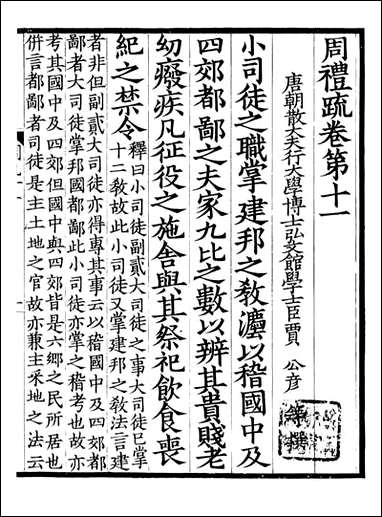 周禮疏卷第十一
唐朝散大夫行大學博士弘文館學士臣賈 公彥 等撰
小司徒之職掌建邦之敎灋以稽國中及
四郊都鄙之夫家九比之數以辨其貴賤老
幼癈疾凡征役之施舍與其祭祀飲食喪
紀之禁令
釋曰小司徒副貳大司徒之事大司徒已掌
十二敎故此小司徒又掌建邦之敎法言建
者非但副貳大司徒亦得專其事云以稽國中及四郊都
鄙者大司徒掌邦國都鄙此小司徒亦掌之稽考也故亦
考其國中及四郊但國中與四郊皆是六鄉之民所居也
併言都鄙者司徒是主土地之官故亦兼主采地之法云